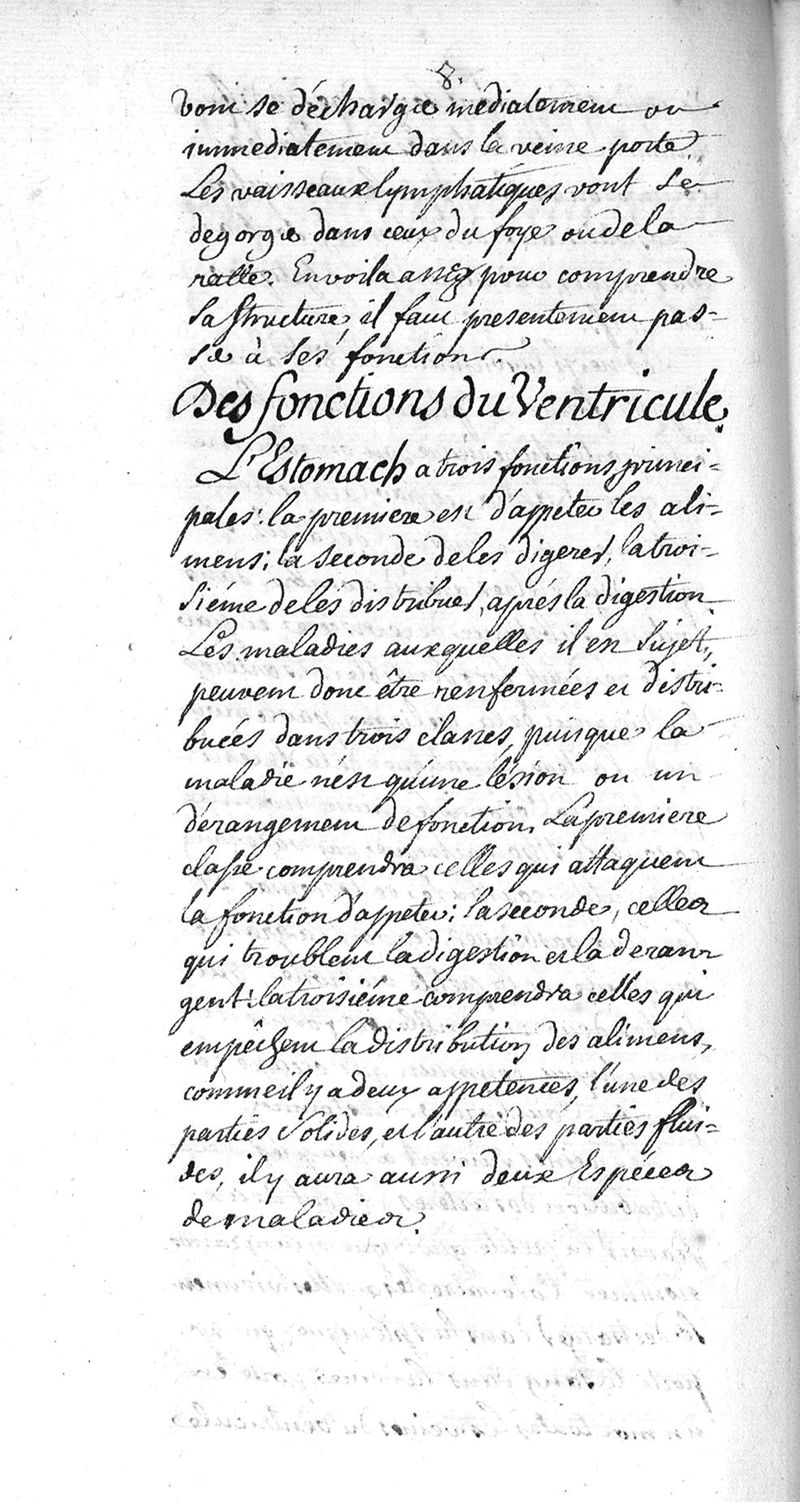 8.
vont se décharger mediatement ou
immediatement dans la veine porte
Les vaisseaux lymphatiques vont se
degorger dans ceux du foye ou de la
ratte. En voila assez pour comprendre
sa structure, il faut presentement pas-
ser à ses fonctions.
Des fonctions du Ventricule.
L'Estomach a trois fonctions princi-
pales: la premiere est d'appeter les ali-
mens; la seconde de les digerer, la troi-
siéme de les distribuer, aprés la digestion.
Les maladies auxquelles il est sujet,
peuvent donc être renfermées et distri-
buées dans trois classes, puisque la
maladie n'est qu'une lésion ou un
dérangement de fonction. La premiere
classe comprendra celles qui attaquent
la fonction d'appeter: la seconde, celles
qui troublent la digestion et la deran-
gent: la troisiéme comprendra celles qui
empêchent la distribution des alimens,
comme il y a deux appetences, l'une des
parties solides, et l'autre des parties flui-
des, il y aura aussi deux Espéces
de maladies.